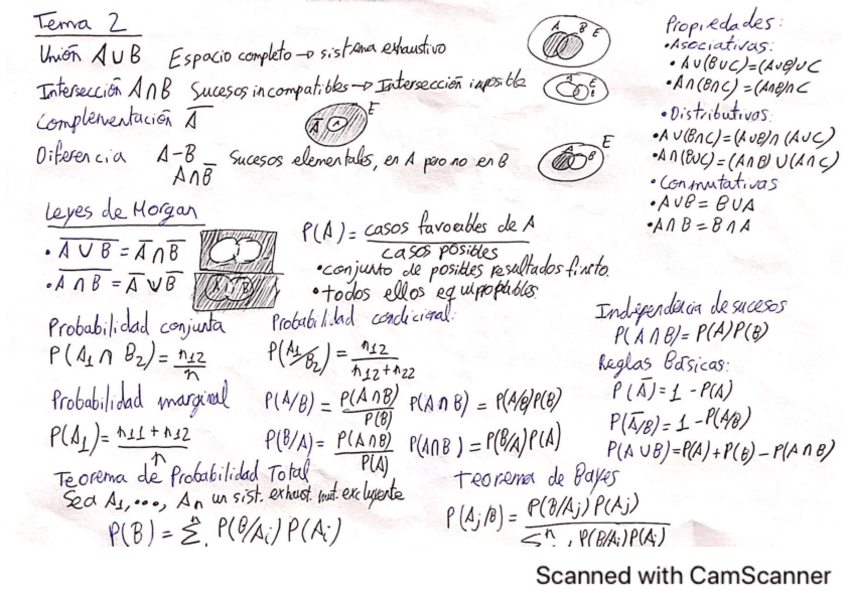 Tema 2
Unión A∪B Espacio completo → sistema exhaustivo
A B E
Intersección A∩B Sucesos incompatibles → Intersección imposible
Complementación A̅
A̅ A E
Diferencia A-B Sucesos elementales, en A pero no en B
A∩B̅
E
A B
Propiedades:
• Asociativas:
• A∪(B∪C)=(A∪B)∪C
• A∩(B∩C)=(A∩B)∩C
• Distributivas:
• A∪(B∩C)=(A∪B)∩(A∪C)
• A∩(B∪C)=(A∩B)∪(A∩C)
• Conmutativas
• A∪B = B∪A
• A∩B = B∩A
Leyes de Morgan
• \overline{A∪B} = A̅∩B̅
• \overline{A∩B} = A̅∪B̅
P(A) = casos favorables de A / casos posibles
• conjunto de posibles resultados finito.
• todos ellos equiprobables.
Probabilidad conjunta
P(A₁∩B₂) = n₁₂/n
Probabilidad condicional:
P(A₁/B₂) = n₁₂/(n₁₂+n₂₂)
Probabilidad marginal
P(A₁) = (n₁₁+n₁₂)/n
P(A/B) = P(A∩B)/P(B) P(A∩B) = P(A/B)P(B)
P(B/A) = P(A∩B)/P(A) P(A∩B) = P(B/A)P(A)
Independencia de sucesos
P(A∩B) = P(A)P(B)
Reglas Básicas:
P(A̅) = 1 - P(A)
P(A̅/B) = 1 - P(A/B)
P(A∪B) = P(A) + P(B) - P(A∩B)
Teorema de Probabilidad Total
Sea A₁,..., Aₙ un sist. exhaust. mut. excluyente
P(B) = Σⁿ P(B/Aᵢ) P(Aᵢ)
Teorema de Bayes
P(Aⱼ/B) = P(B/Aⱼ) P(Aⱼ) / Σⁿ P(B/Aᵢ)P(Aᵢ)
Scanned with CamScanner